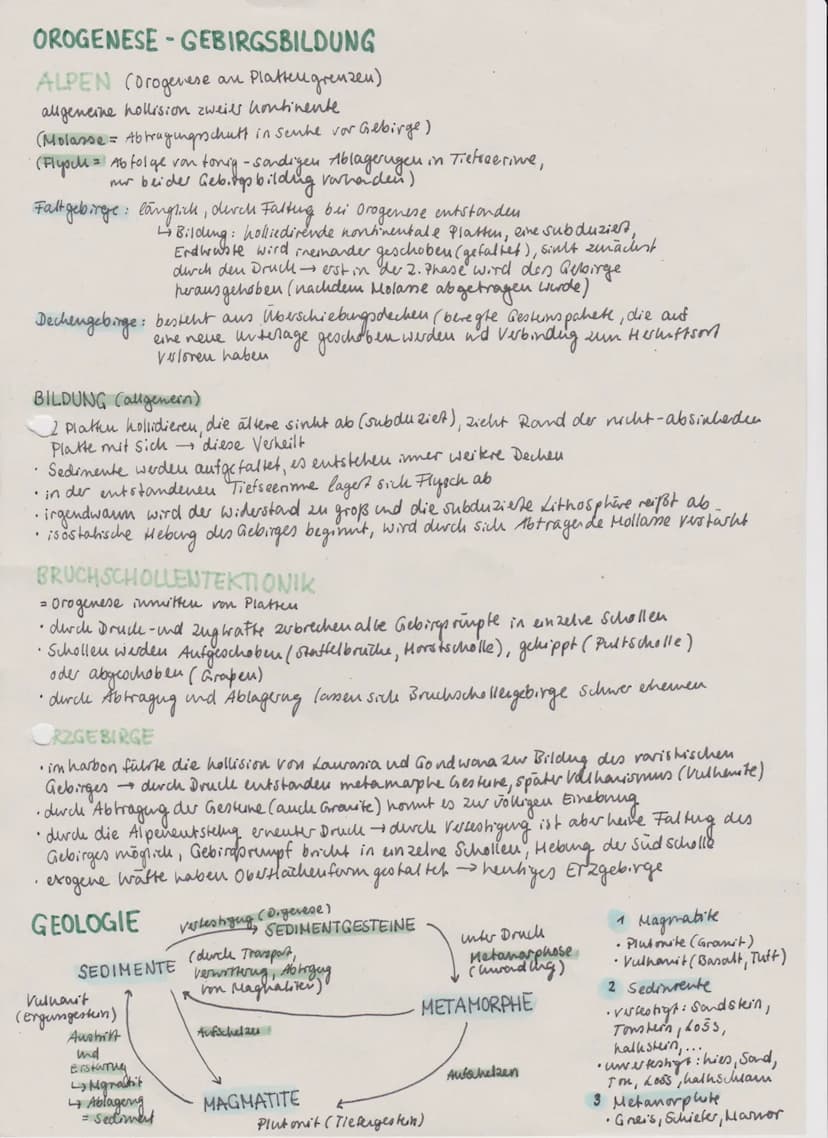 OROGENESE - GEBIRGSBILDUNG
ALPEN (Orogenese an Plattengrenzen)
allgemeine Kollision zweier Kontinente
(Molasse = Abtragungsschutt in Senke vor Gebirge)
(Flysch = Abfolge von tonig-sandigen Ablagerungen in Tiefseerinne,
nur bei der Gebirgsbildung vorhanden)
Faltgebirge: länglich, durch Faltung bei Orogenese entstanden
↳ Bildung: kollidierende kontinentale Platten, eine subduziert,
Erdkruste wird ineinander geschoben (gefaltet), sinkt zunächst
durch den Druck → erst in der 2. Phase wird das Gebirge
herausgehoben (nachdem Molasse abgetragen wurde)
Deckengebirge: besteht aus Überschiebungsdecken (bewegte Gesteinspakete, die auf
eine neue Unterlage geschoben werden und Verbindung zum Herkunftsort
verloren haben
BILDUNG (allgemein)
2 Platten kollidieren, die ältere sinkt ab (subduziert), zieht Rand der nicht-absinkenden
Platte mit sich → diese verkeilt
· Sedimente werden aufgefaltet, es entstehen immer weitere Decken
· in der entstandenen Tiefseerinne lagert sich Flysch ab
· irgendwann wird der Widerstand zu groß und die subduzierte Lithosphäre reißt ab
· isostatische Hebung des Gebirges beginnt, wird durch sich abtragende Mollasse verstärkt
BRUCHSCHOLLENTEKTIONIK
= Orogenese inmitten von Platten
· durch Druck- und Zugkräfte zerbrechen alte Gebirgsrümpfe in einzelne Schollen
· Schollen werden Aufgeschoben (Staffelbrüche, Horstscholle), gekippt (Pultscholle)
oder abgeschoben (Graben)
· durch Abtragung und Ablagerung lassen sich Bruchschollengebirge schwer erkennen
RZGEBIRGE
· im Karbon führte die Kollision von Laurasia und Gondwana zur Bildung des variskischen
Gebirges → durch Druck entstanden metamorphe Gesteine, später Vulkanismus (Vulkanite)
· durch Abtragung der Gesteine (auch Granite) kommt es zur völligen Einebnung
· durch die Alpenentstehung erneuter Druck → durch Verfestigung ist aber keine Faltung des
Gebirges möglich, Gebirgsrumpf bricht in einzelne Schollen, Hebung der Südscholle
· exogene Kräfte haben Oberflächenform gestaltet → heutiges Erzgebirge
GEOLOGIE
Verfestigung (Digenese)
SEDIMENTGESTEINE
SEDIMENTE
(durch Transport,
Verwitterung, Abtragung
von Magmatiten)
unter Druck
Metamorphose
(Umwandlung)
METAMORPHE
Vulkanit
(Ergussgestein)
Austritt
und
Erstarrung
↳ Magmatit
↳ Ablagerung
= Sediment
Aufschmelzen
Aufschmelzen
MAGMATITE
Plutonit (Tiefengestein)
1 Magmatite
· Plutonite (Granit)
· Vulkanit (Basalt, Tuff)
2 Sedimente
· verfestigt: Sandstein,
Tonstein, Löss,
Kalkstein, ...
· unverfestigt: Kies, Sand,
Ton, Löss, Kalkschlamm
3 Metamorphite
· Gneis, Schiefer, Marmor